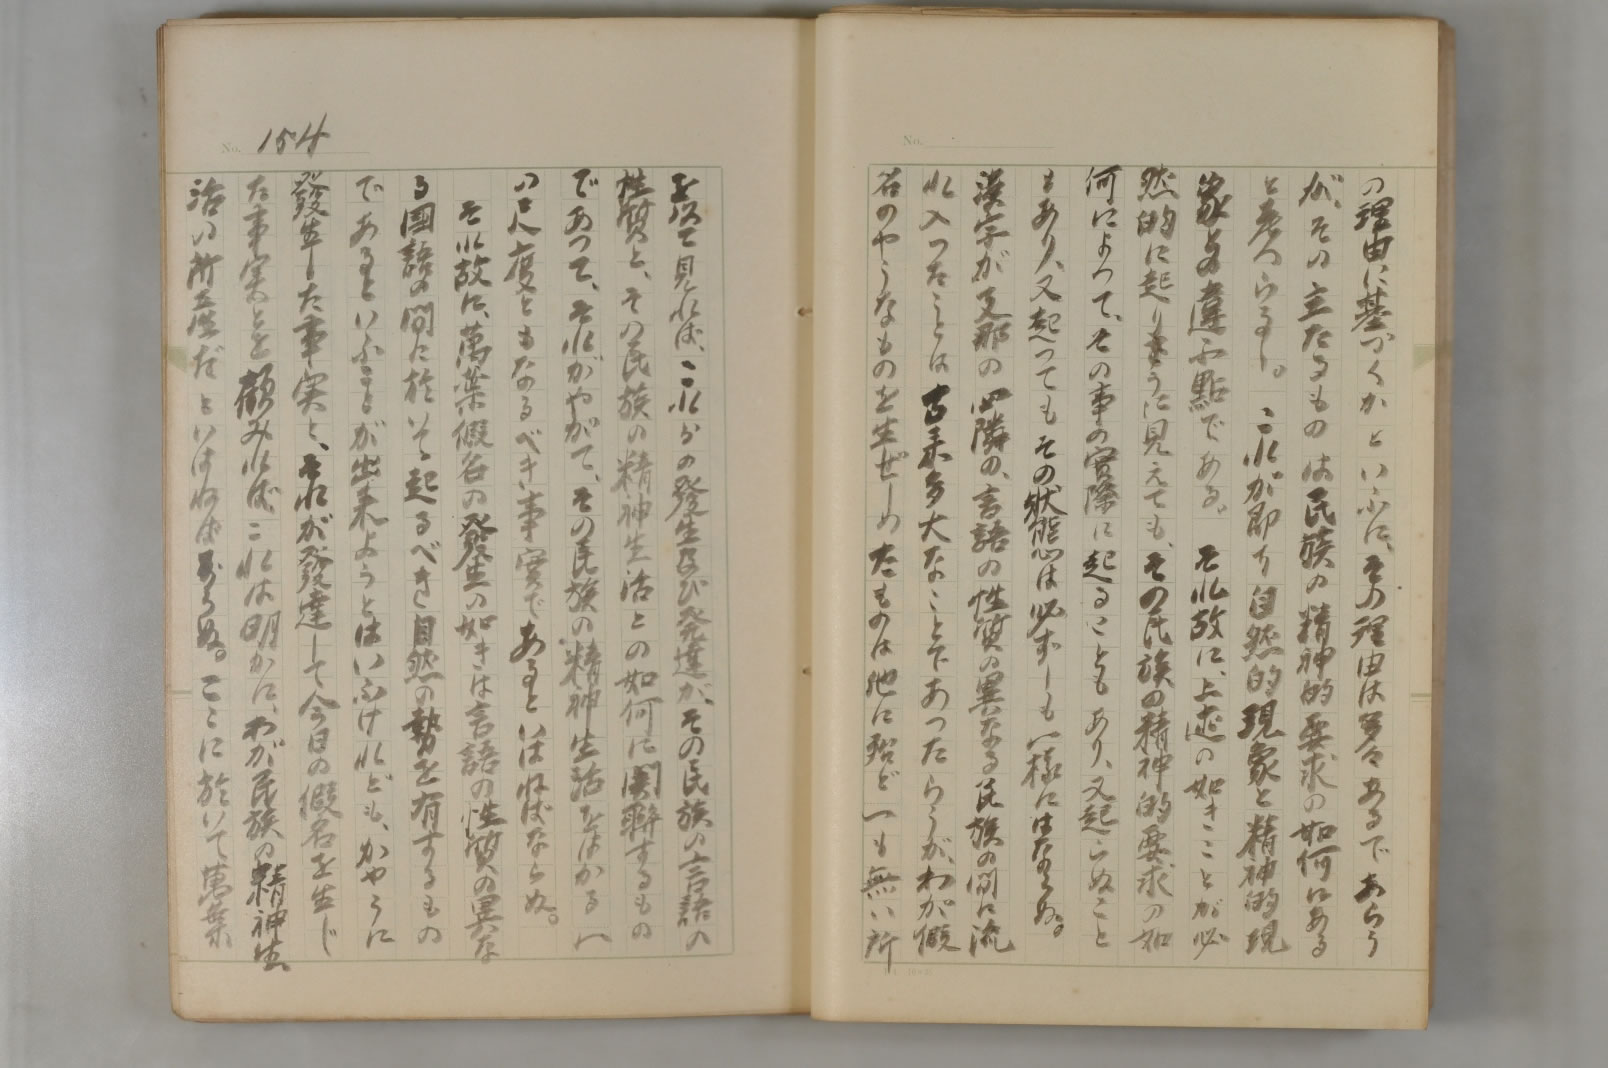 No.
の理由に基づくかといふに、その理由は多々あるであらう
が、その主たるものは民族の精神的要求の如何にある
と考へらるゝ。これが即ち自然的現象と精神的現
象との違ふ點である。それ故に、上述の如きことが必
然的に起りさうに見えても、その民族の精神的要求の如
何によつて、その事の實際に起ることもあり、又起らぬこと
もあり、又起つてもその狀態は必ずしも一樣にはならぬ。
漢字が支那の四隣の、言語の性質の異なる民族の間に流
れ入つたことは古来多大なことであつたらうが、わが假
名のやうなものを生ぜしめたものは他に殆ど一つも無い所
No. 154
を以て見れば、これらの發生及び発達が、その民族の言語の
性質と、その民族の精神生活との如何に関聯するもの
であつて、それがやがて、その民族の精神生活をはかる一
の尺度ともなるべき事實であるといはねばならぬ。
それ故に、萬葉假名の發生の如きは言語の性質の異な
る國語の間に於いて起るべき自然の勢を有するもの
であるといふことが出来ようとはいふけれども、かやうに
發生した事実と、それが発達して今日の假名を生じ
た事実とを顧みれば、これは明かに、わが民族の精神生
活の所産だといはねばならぬ。ここに於いて萬葉